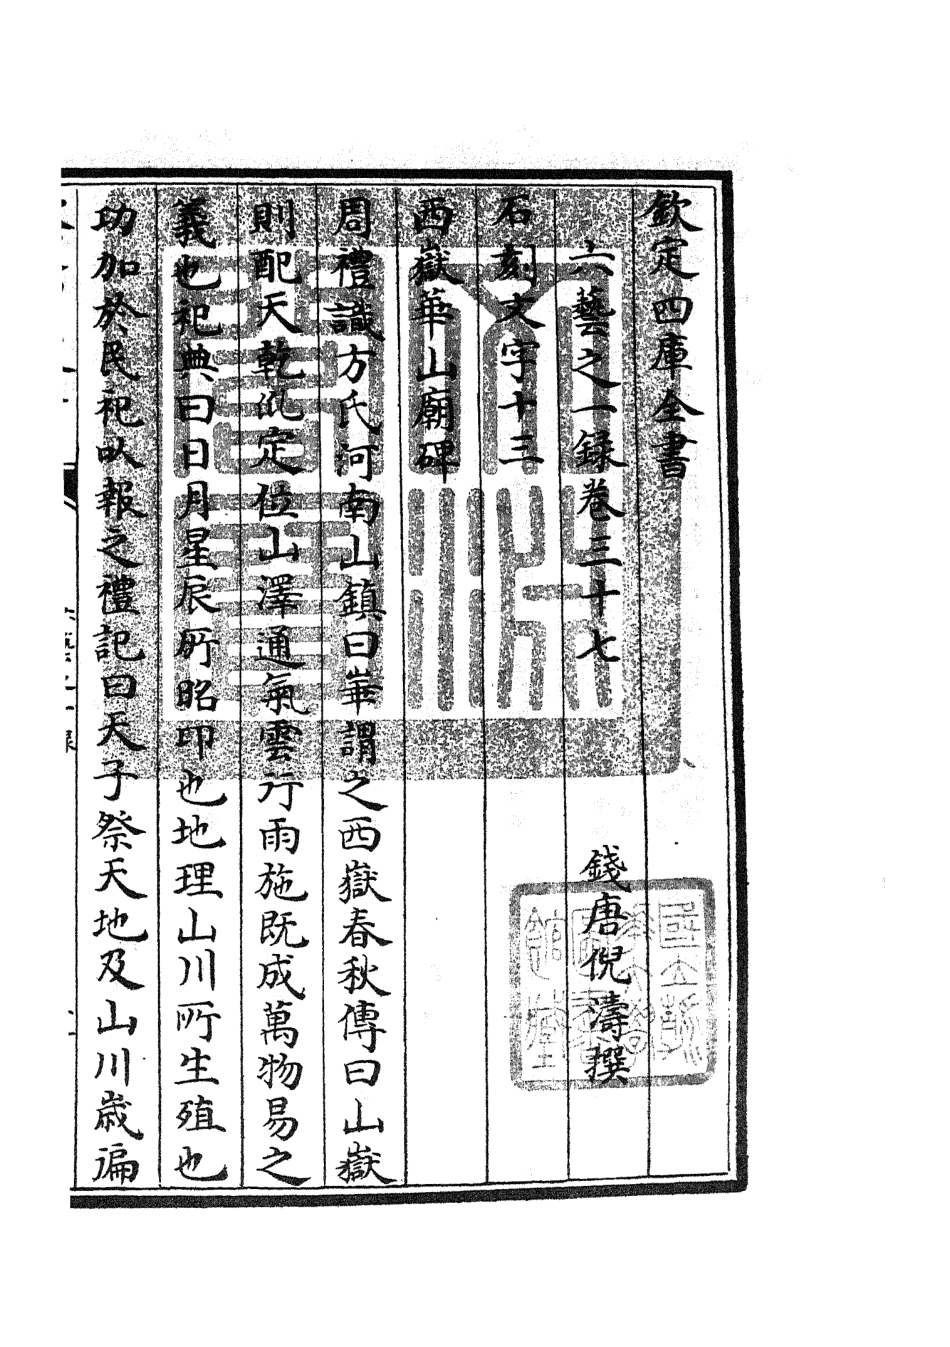 欽定四庫全書
六藝之一錄卷三十七
錢唐倪濤撰
石刻文字十三
西嶽華山廟碑
周禮識方氏河南山鎮曰華謂之西嶽春秋傳曰山嶽
則配天乾㐲定位山澤通氣雲行雨施既成萬物易之
義也祀典曰日月星辰所昭卬也地理山川所生殖也
功加於民祀㕥報之禮記曰天子祭天地及山川歳徧